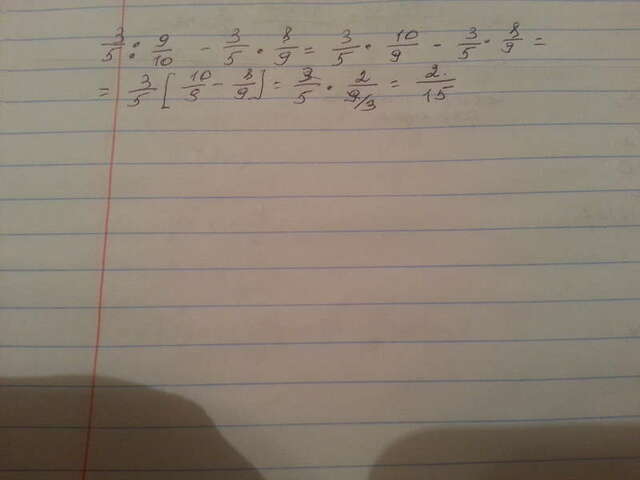 3/5 : 9/10 - 3/5 · 8/9 = 3/5 · 10/9 - 3/5 · 8/9 =
= 3/5 [10/9 - 8/9] = 3/5 · 2/9/3 = 2/15